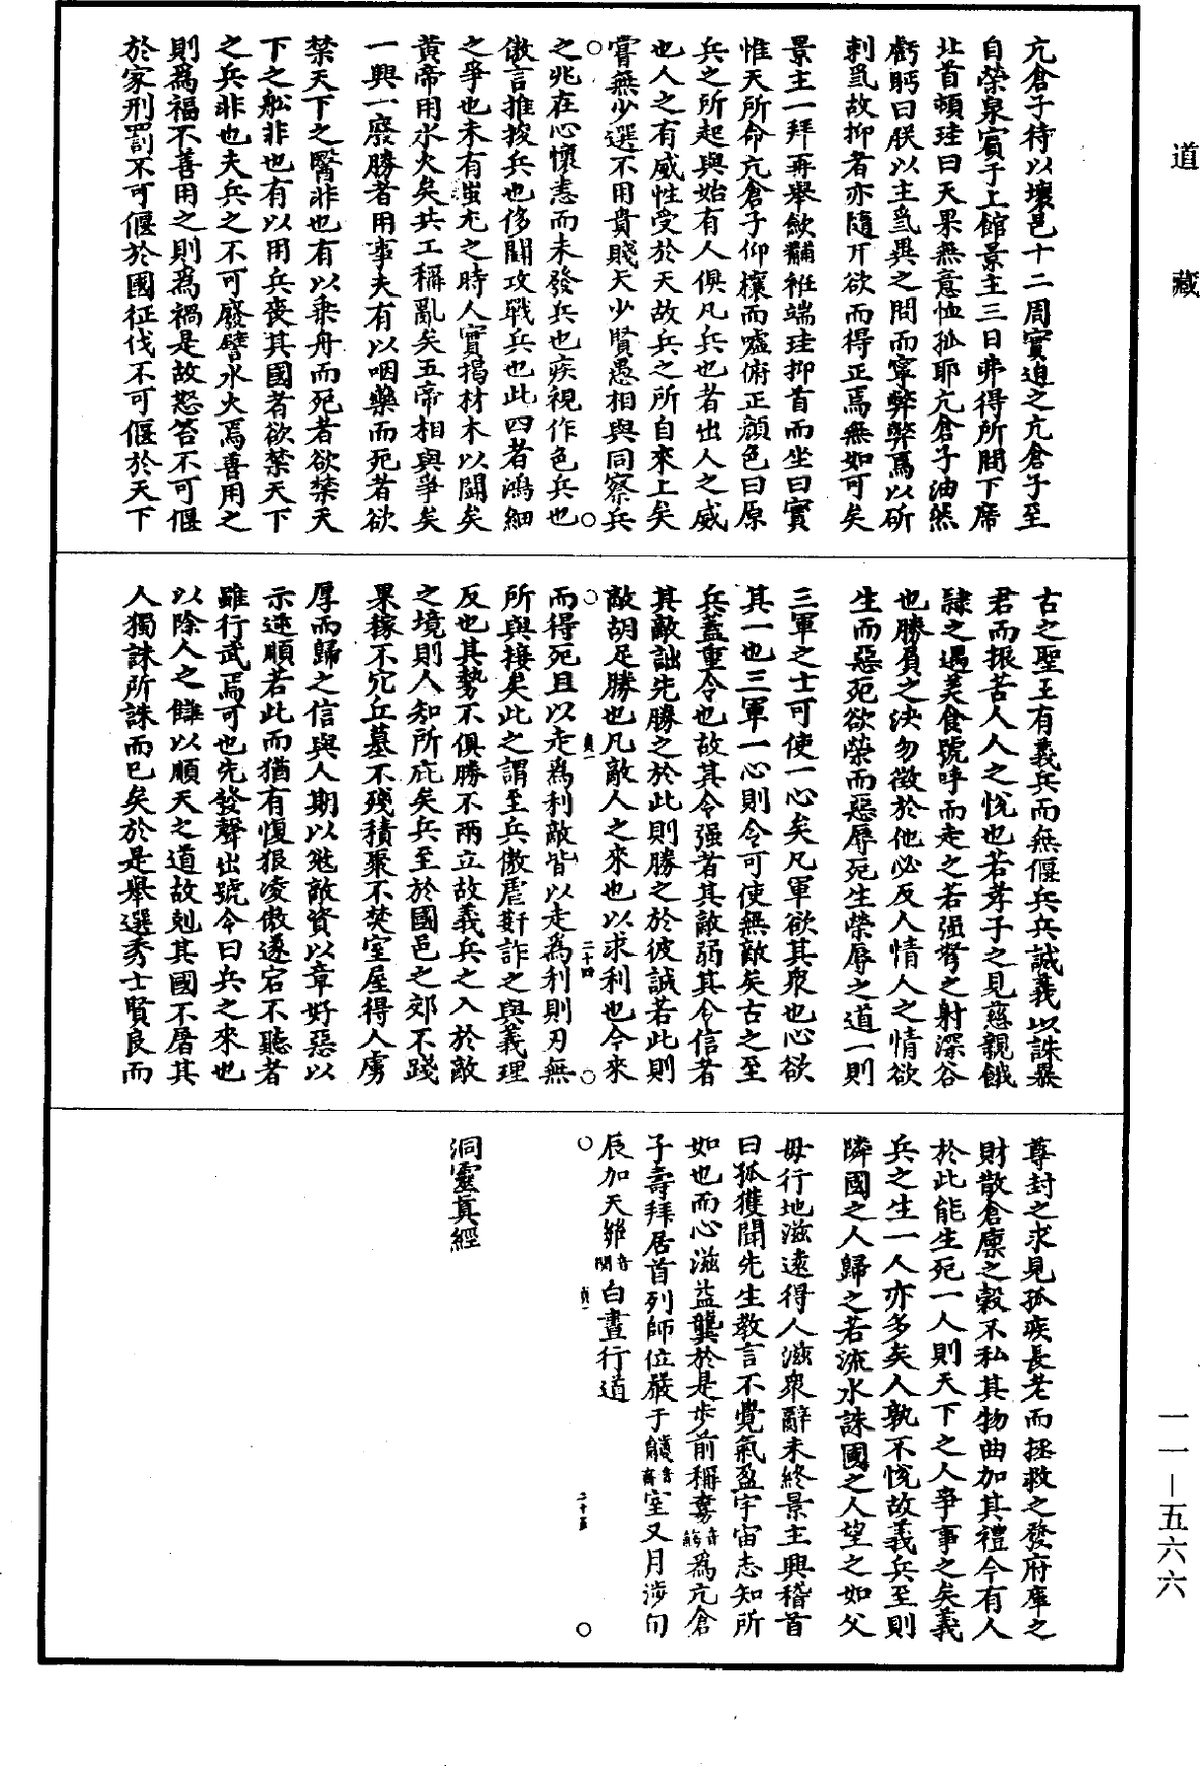 道藏
亢倉子待以壤邑十二周實迫之亢倉子至
自榮泉賓于上館景主三日弗得所間下席
北首頓珪曰天果無意恤孤耶亢倉子油然
虧眄曰朕以主㒵異之問而寧弊弊焉以斫
刺㒵故抑者亦隨丌欲而得正焉無如可矣
景主一拜再舉斂黼袵端珪抑首而坐曰實
惟天所命亢倉子仰榱而噓俯正顏色曰原
兵之所起與始有人俱凡兵也者出人之威
也人之有威性受於天故兵之所自來上矣
嘗無少選不用貴賤天少賢愚相與同察兵
之兆在心懷恚而未發兵也疾視作色兵也
傲言推捘兵也侈鬪攻戰兵也此四者鴻細
之爭也未有蚩尤之時人實揭材木以鬪矣
黃帝用水火矣共工稱亂矣五帝相與爭矣
一興一廢勝者用事夫有以咽藥而死者欲
禁天下之醫非也有以乗舟而死者欲禁天
下之舩非也有以用兵喪其國者欲禁天下
之兵非也夫兵之不可廢譬水火焉善用之
則為福不善用之則為禍是故怒笞不可偃
於家刑罰不可偃於國征伐不可偃於天下
古之聖王有義兵而無偃兵兵誠義以誅暴
君而振苦人人之悅也若孝子之見慈親餓
隸之遇美食號呼而走之若强弩之射深谷
也勝負之決勿徵於他必反人情人之情欲
生而惡死欲榮而惡辱死生榮辱之道一則
三軍之士可使一心矣凡軍欲其衆也心欲
其一也三軍一心則令可使無敵矣古之至
兵蓋重令也故其令强者其敵弱其令信者
其敵詘先勝之於此則勝之於彼誠若此則
敵胡足勝也凡敵人之來也以求利也今來
貞一
二十四
而得死且以走為利敵皆以走為利則刃無
所與接矣此之謂至兵傲虐姧詐之與義理
反也其勢不俱勝不兩立故義兵之入於敵
之境則人知所庇矣兵至於國邑之郊不踐
果稼不穴丘墓不殘積聚不焚室屋得人虜
厚而歸之信與人期以㪅敵資以章好惡以
示逆順若此而猶有愎狠凌傲遂宕不聽者
雖行武焉可也先發聲出號令曰兵之來也
以除人之讎以順天之道故剋其國不屠其
人獨誅所誅而已矣於是舉選秀士賢良而
尊封之求見孤疾長老而拯救之發府庫之
財散倉廩之穀不私其物曲加其禮今有人
於此能生死一人則天下之人爭事之矣義
兵之生一人亦多矣人孰不悅故義兵至則
隣國之人歸之若流水誅國之人望之如父
母行地滋遠得人滋衆辭未終景主興稽首
曰孤獲聞先生教言不覺氣盈宇宙志知所
如也而心滋益龔於是步前稱為亢倉
子壽拜居首列師位嚴于室又月涉旬
辰加天雖白晝行道
貞一
二十五
洞靈真經
一一—五六六